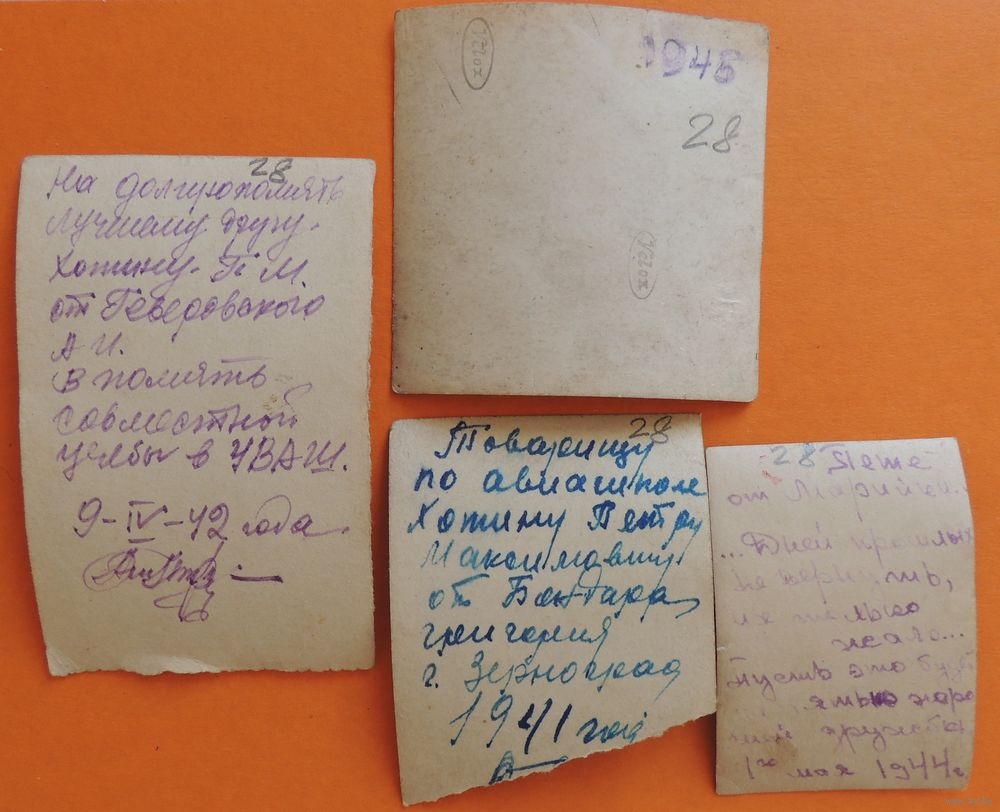 28
На долгую помять
лучшему другу.
Хотину. П М.
от
А И.
в помять
совместной
учебы в УВАШ.
9-IV-42 года.
Velox
1945
28
Velox
28
Товарищу
по авиашколе
Хотину Петру
Максимовичу.
от Бондара
григория
г. Зерноград
1941 год
28 Пете
от Марийки.
...Дней прошлых
не вернуть,
их только
жаль...
Пусть это будет
нашей дружбы
1го мая 1944 г.